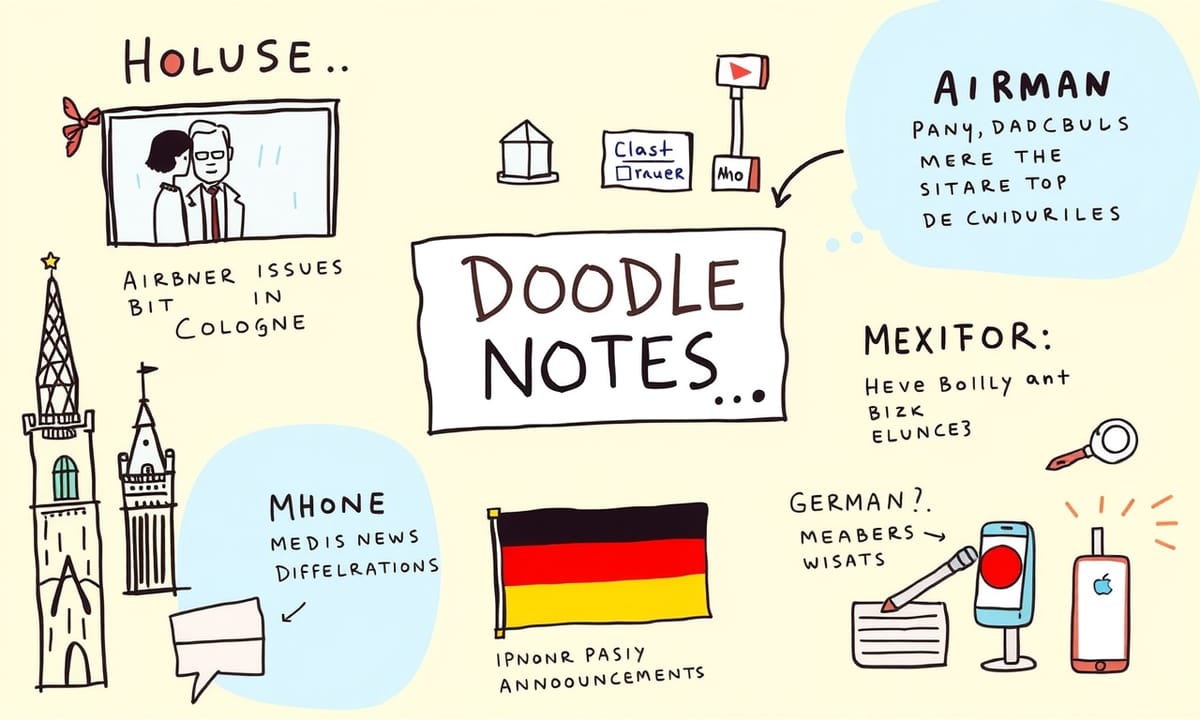 HOLUSE..
AIRBNER ISSUES
BIT IN
COLOGNE
Clast
□rauer
Aho
AIRMAN
PANY, DADCBULS
MERE THE
SITARE TOP
DE CWIDURILES
DOODLE
NOTES...
MEXIFOR:
HEVE BOLLLY ant
BIZK
ELUNCE3
MHONE
MEDIS NEWS
DIFFELRATIONS
GERMAN?.
MEABERS
WISATS
IPNONR PASIY
ANNOOUNCEMENTS